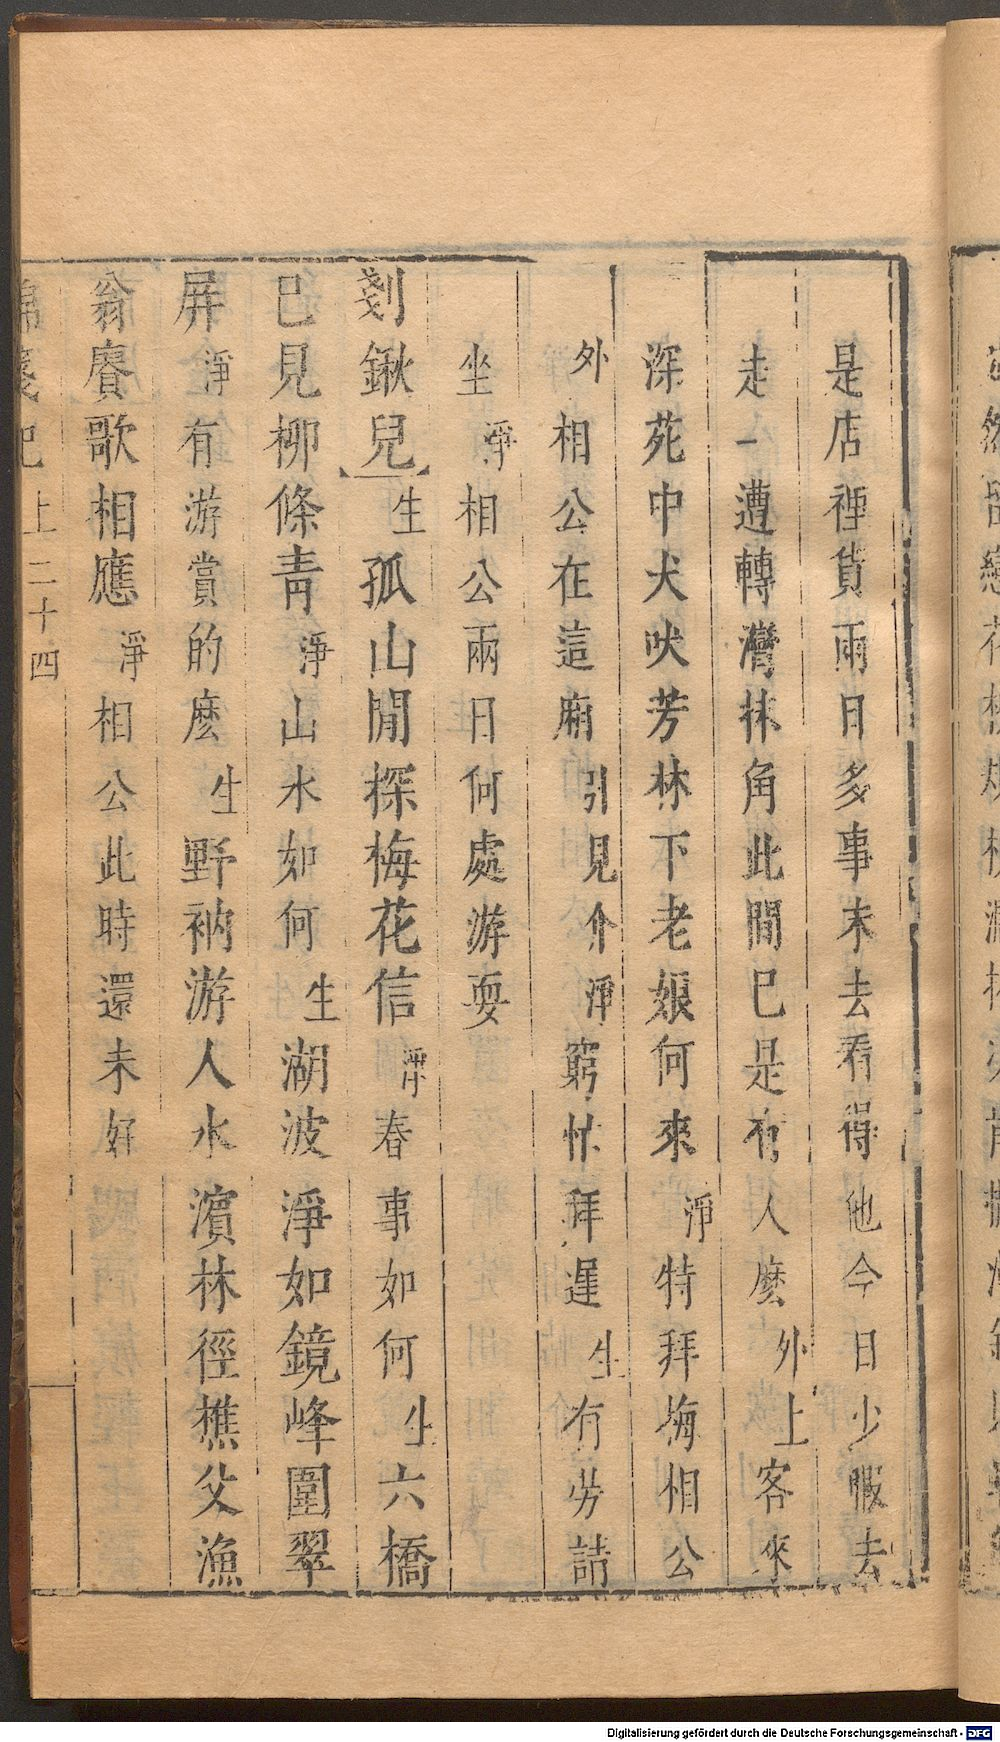 是店裡貨兩日多事未去看得他今日少暇去
走一遭轉灣抹角此間已是有人麽外上客來
深苑中犬吠芳林下老娘何來淨特拜梅相公
外相公在這廂引見介淨窮忙拜遲生有勞請
坐淨相公兩日何處游耍
剗鍬兒生孤山閒探梅花信淨春事如何生六橋
已見柳條青淨山水如何生湖波淨如鏡峰圍翠
屏淨有游賞的麽生野衲游人水濱林徑樵父漁
翁賡歌相應淨相公此時還未好
上二十四
Digitalisierung gefördert durch die Deutsche Forschungsgemeinschaft - DFG